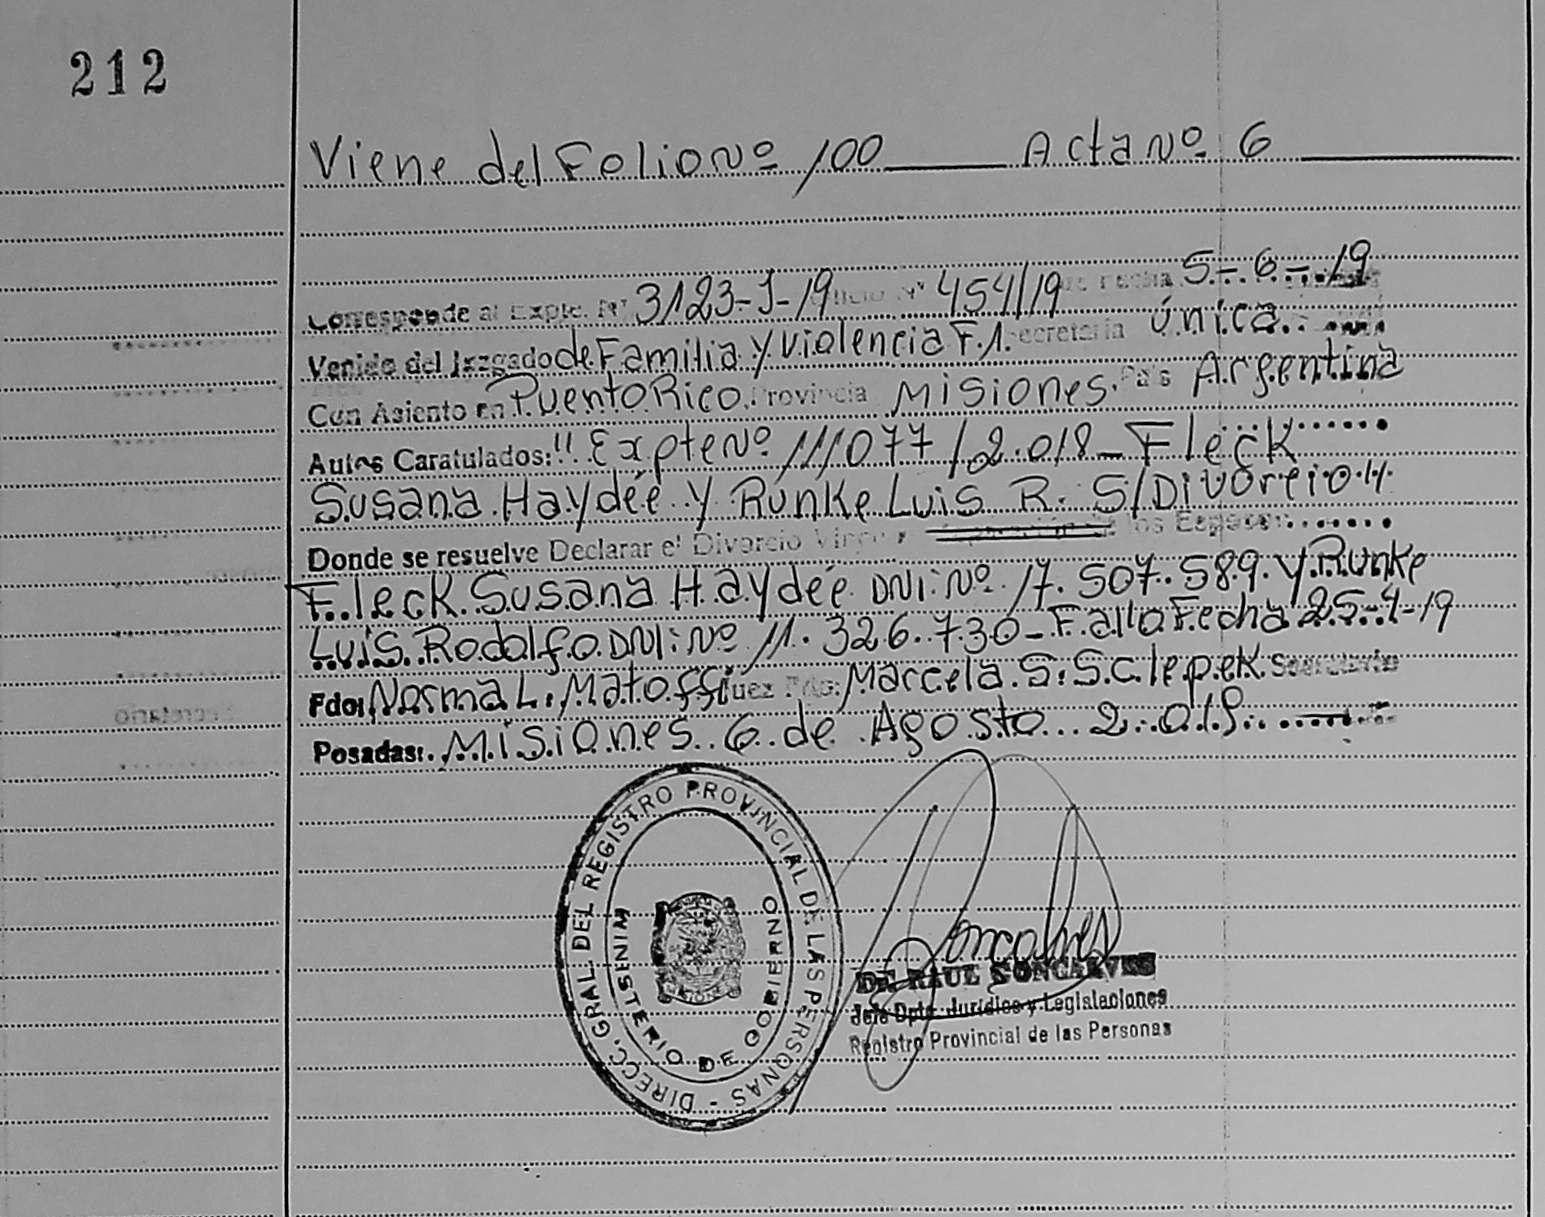 212
Viene del Folio Nº 100 Acta Nº 6
Corresponde al Expte. Nº 3123-J-19 Oficio Nº 454/19 de Fecha 5-6-19
Venido del Juzgado de Familia y Violencia F.1. Secretaria Única.
Con Asiento en Puerto Rico. Provincia Misiones. País Argentina
Autos Caratulados: "Expte Nº 111077/2.018 - Fleck
Susana Haydée y Runke Luis R. S/Divorcio"
Donde se resuelve Declarar el Divorcio de los Esposos
Fleck Susana Haydée DNI: Nº 17.507.589. y Runke
Luis Rodolfo DNI: Nº 11.326.730 - Fallo Fecha 25-4-19
Fdo: Norma L. Matoffi Juez Fdo: Marcela S. Sclepek Secretaria
Posadas: Misiones 6 de Agosto
DIRECC. GRAL. DEL REGISTRO PROVINCIAL DE LAS PERSONAS -
MINISTERIO DE GOBIERNO
Dr. RAUL GONCALVES
Jefe Dpto. Jurídico y Legislaciones
Registro Provincial de las Personas